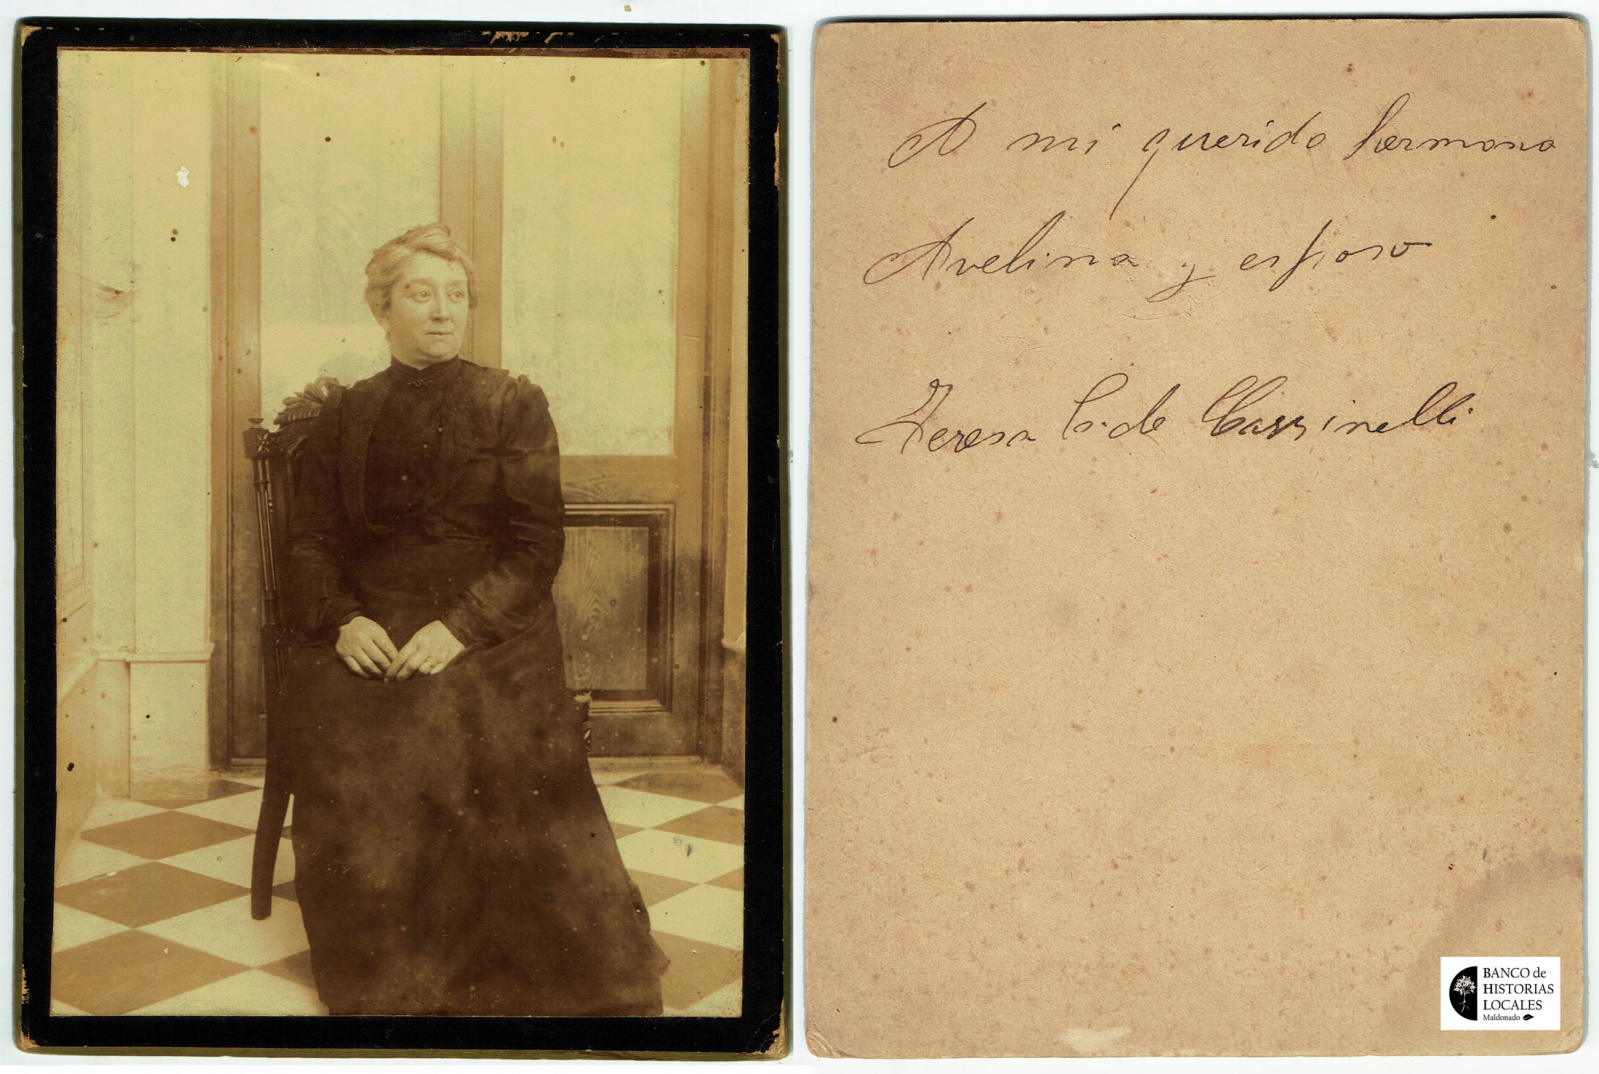 A mi querida hermana
Avelina y esposo
Teresa C. de Cassinelli
BANCO de
HISTORIAS
LOCALES
Maldonado